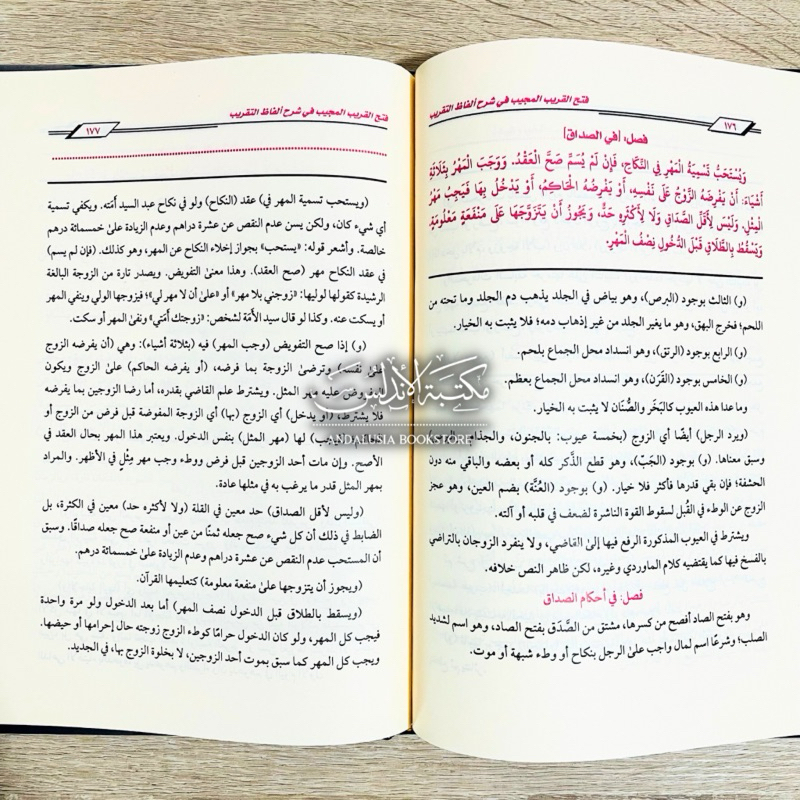 فتح القريب المجيب في شرح ألفاظ التقريب
١٧٦
فصل: [في الصداق]
وَيُسْتَحَبُّ تَسْمِيَةُ الْمَهْرِ فِي النِّكَاحِ، فَإِنْ لَمْ يُسَمِّ صَحَّ الْعَقْدُ. وَوَجَبَ الْمَهْرُ بِثَلَاثَةِ
أَشْيَاءَ: أَنْ يَفْرِضَهُ الزَّوْجُ عَلَى نَفْسِهِ، أَوْ يَفْرِضَهُ الْحَاكِمُ، أَوْ يَدْخُلَ بِهَا فَيَجِبُ مَهْرُ
الْمِثْلِ. وَلَيْسَ لِأَقَلِّ الصَّدَاقِ وَلَا لِأَكْثَرِهِ حَدٌّ، وَيَجُوزُ أَنْ يَتَزَوَّجَهَا عَلَى مَنْفَعَةٍ مَعْلُومَةٍ.
وَيَسْقُطُ بِالطَّلَاقِ قَبْلَ الدُّخُولِ نِصْفُ الْمَهْرِ.
(و) الثالث بوجود (البرص)، وهو بياض في الجلد يذهب دم الجلد وما تحته من
اللحم؛ فخرج البهق، وهو ما يغير الجلد من غير إذهاب دمه؛ فلا يثبت به الخيار.
(و) الرابع بوجود (الرتق)، وهو انسداد محل الجماع بلحم.
(و) الخامس بوجود (القَرَن)، وهو انسداد محل الجماع بعظم.
وما عدا هذه العيوب كالبَخَر والصُّنَان لا يثبت به الخيار.
(ويرد الرجل) أيضًا أي الزوج (بخمسة عيوب: بالجنون، والجذام، والبرص)
وسبق معناها. (و) بوجود (الجَبّ)، وهو قطع الذَّكر كله أو بعضه والباقي منه دون
الحشفة؛ فإن بقي قدرها فأكثر فلا خيار. (و) بوجود (العُنَّة) بضم العين، وهو عجز
الزوج عن الوطء في القُبل لسقوط القوة الناشرة لضعف في قلبه أو آلته.
ويشترط في العيوب المذكورة الرفع فيها إلى القاضي، ولا ينفرد الزوجان بالتراضي
بالفسخ فيها كما يقتضيه كلام الماوردي وغيره، لكن ظاهر النص خلافه.
فصل: في أحكام الصداق
وهو بفتح الصاد أفصح من كسرها، مشتق من الصَّدْق بفتح الصاد، وهو اسم لشديد
الصلب؛ وشرعًا اسم لمال واجب على الرجل بنكاح أو وطء شبهة أو موت.
فتح القريب المجيب في شرح ألفاظ التقريب
١٧٧
(ويستحب تسمية المهر في) عقد (النكاح) ولو في نكاح عبد السيد أمَته. ويكفي تسمية
أي شيء كان، ولكن يسن عدم النقص عن عشرة دراهم وعدم الزيادة على خمسمائة درهم
خالصة. وأشعر قوله: «يستحب» بجواز إخلاء النكاح عن المهر، وهو كذلك. (فإن لم يسم)
في عقد النكاح مهر (صح العقد). وهذا معنى التفويض. ويصدر تارة من الزوجة البالغة
الرشيدة كقولها لوليها: «زوجني بلا مهر» أو «على أن لا مهر لي»؛ فيزوجها الولي وينفي المهر
أو يسكت عنه. وكذا لو قال سيد الأَمَة لشخص: «زوجتك أَمَتي» ونفى المهر أو سكت.
(و) إذا صح التفويض (وجب المهر) فيه (بثلاثة أشياء): وهي (أن يفرضه الزوج
على نفسه) وترضى الزوجة بما فرضه، (أو يفرضه الحاكم) على الزوج ويكون
المفروض عليه مهر المثل. ويشترط علم القاضي بقدره، أما رضا الزوجين بما يفرضه
فلا يشترط، (أو يدخل) أي الزوج (بها) أي الزوجة المفوضة قبل فرض من الزوج أو
الحاكم (فيجب) لها (مهر المثل) بنفس الدخول. ويعتبر هذا المهر بحال العقد في
الأصح. وإن مات أحد الزوجين قبل فرض ووطء وجب مهر مِثْلٍ في الأظهر. والمراد
بمهر المثل قدر ما يرغب به في مثلها عادة.
(وليس لأقل الصداق) حد معين في القلة (ولا لأكثره حد) معين في الكثرة، بل
الضابط في ذلك أن كل شيء صح جعله ثمنًا من عين أو منفعة صح جعله صداقًا. وسبق
أن المستحب عدم النقص عن عشرة دراهم وعدم الزيادة على خمسمائة درهم.
(ويجوز أن يتزوجها على منفعة معلومة) كتعليمها القرآن.
(ويسقط بالطلاق قبل الدخول نصف المهر) أما بعد الدخول ولو مرة واحدة
فيجب كل المهر، ولو كان الدخول حرامًا كوطء الزوج زوجته حال إحرامها أو حيضها.
ويجب كل المهر كما سبق بموت أحد الزوجين، لا بخلوة الزوج بها، في الجديد.
مكتبة الأندلس
ANDALUSIA BOOKSTORE